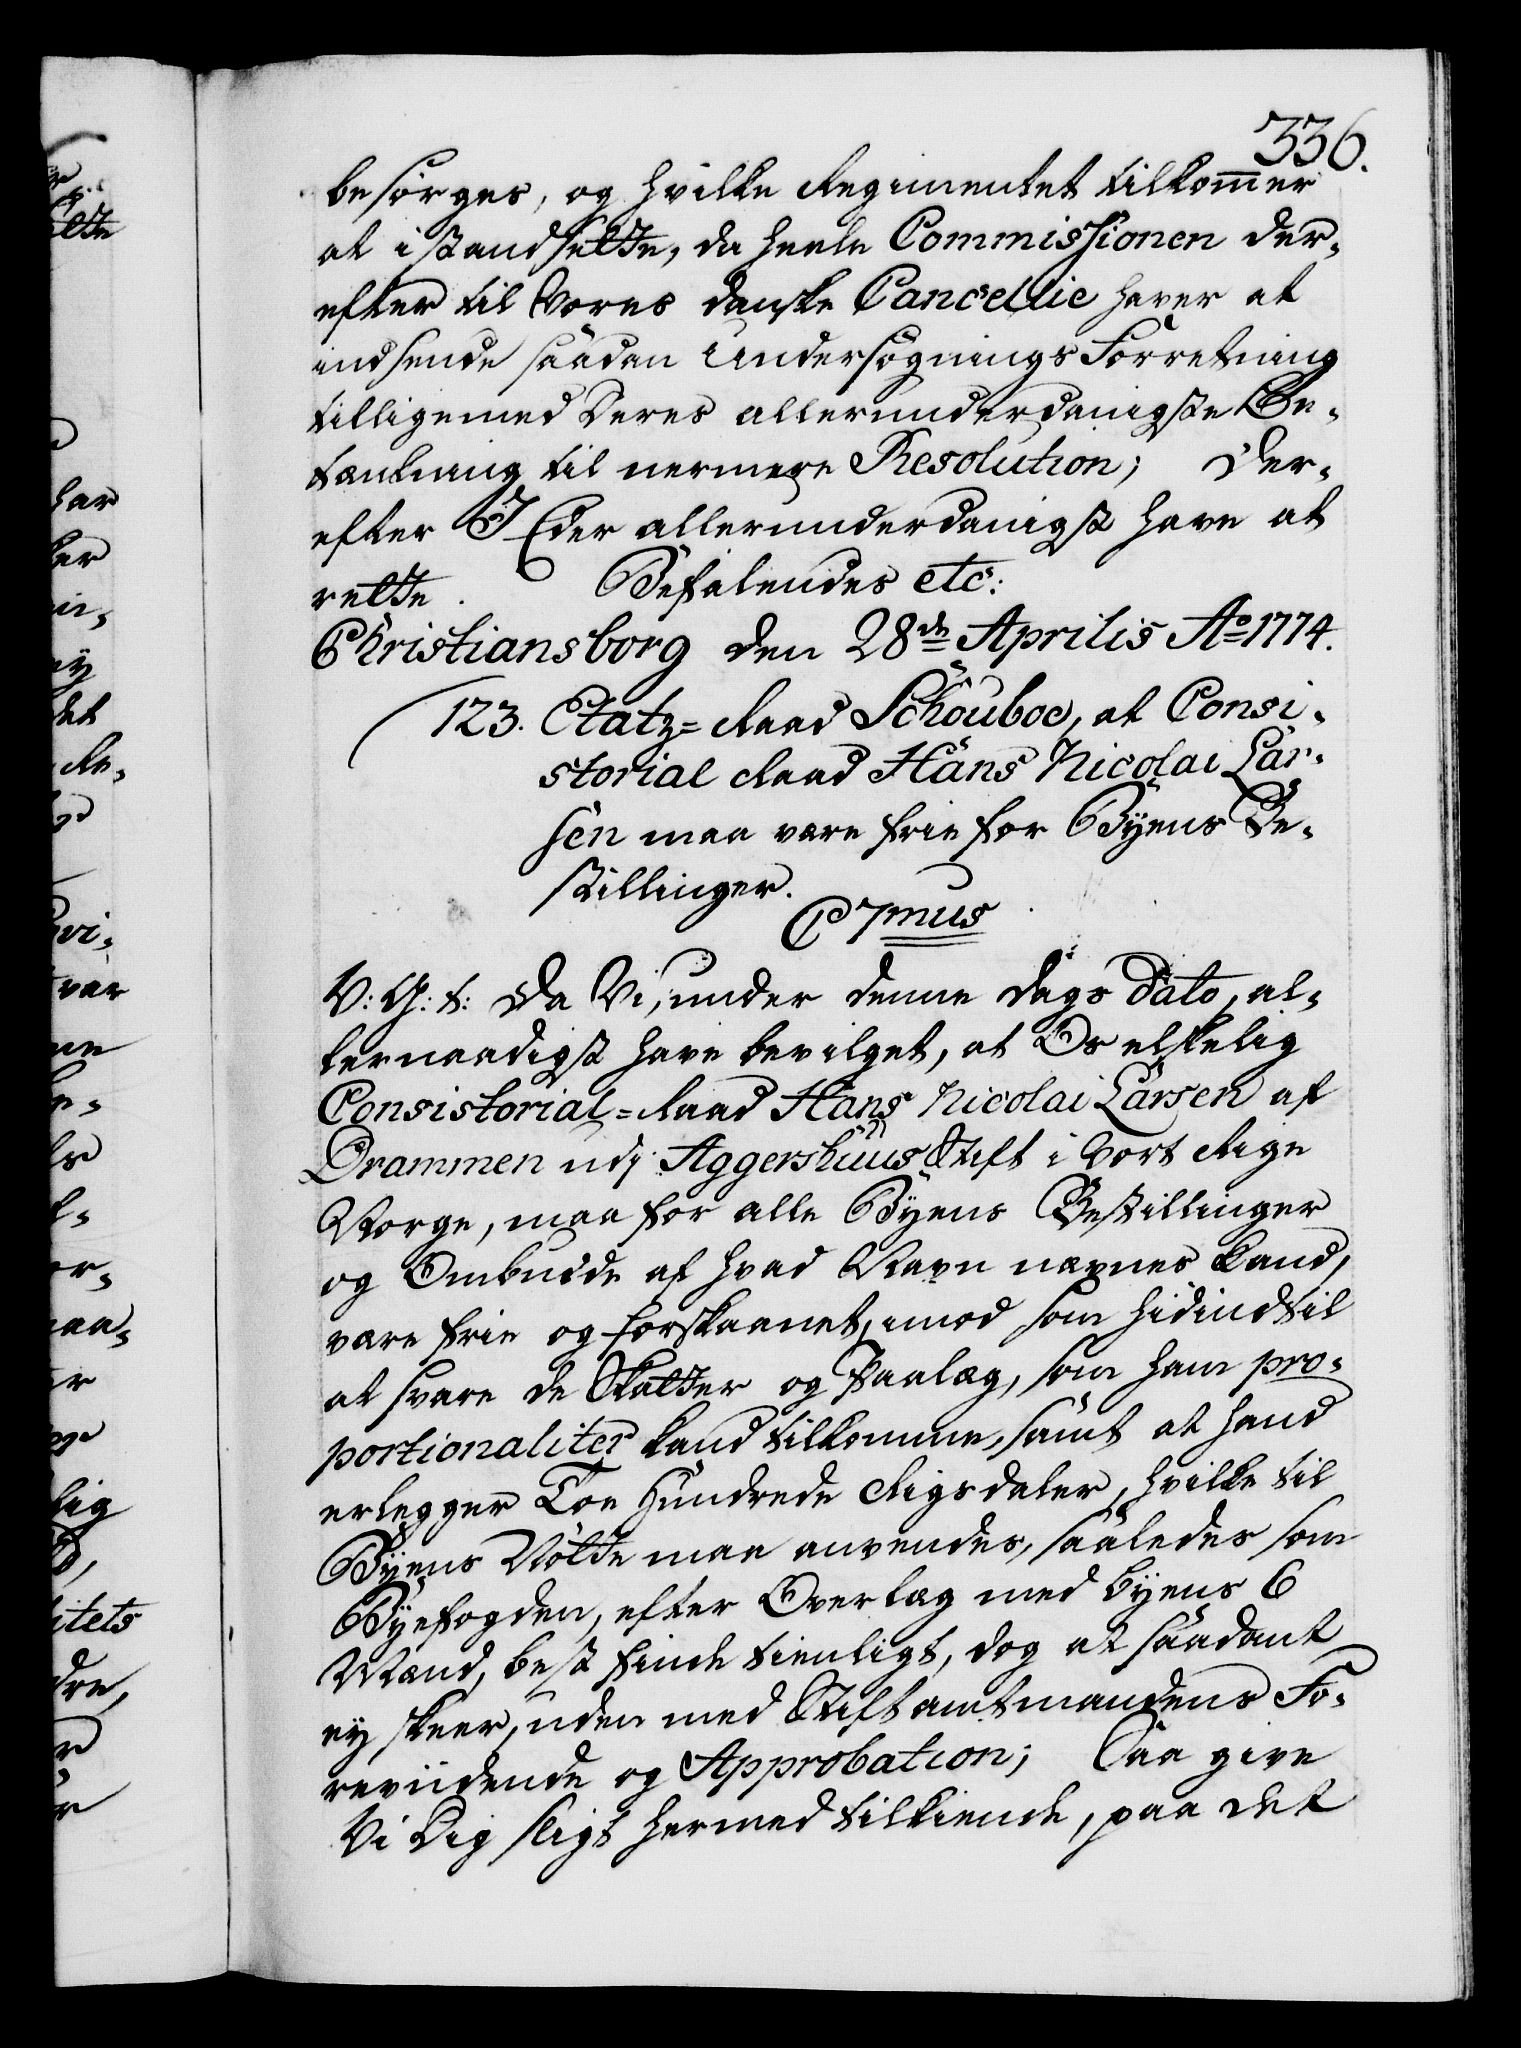 336.
besørges, og hvilke Regimentet tilkommer
at istandsette, da heele Commissionen der-
efter til Vores danske Cancellie haver at
indsende saadan Undersøgnings Forretning
tilligemed Deres allerunderdanigste Be-
tænkning til nermere Resolution; Der-
efter I Eder allerunderdanigst have at
rette. Befalendes etc:
Christiansborg den 28de Aprilis Ao 1774.
123. Etatz=Raad Schouboe, at Consi-
storial Raad Hans Nicolai Lar-
sen maa være frie for Byens Be-
stillinger.
C 7mus
V: G: t: Da Vi, under denne Dags Dato, al-
lernaadigst have bevilget, at Os elskelig
Consistorial=Raad Hans Nicolai Larsen af
Drammen udj Aggershuus Stift i Vort Rige
Norge, maa for alle Byens Bestillinger
og Ombudde af hvad Navn nævnes kand,
være frie og forskaanet, imod som hidindtil
at svare de Skatter og Paalæg, som ham pro-
portionaliter kand tilkomme, samt at hand
erlegger Toe Hundrede Rigsdaler, hvilke til
Byens Nötte maa anvendes, saaledes som
Byefogden, efter Overlæg med Byens 6
Mænd, best finde tienligt, dog at saadant
ey skeer, uden med Stiftamtmandens Fo-
reviidende og Approbation; Saa give
Vi Dig sligt hermed tilkiende, paa det